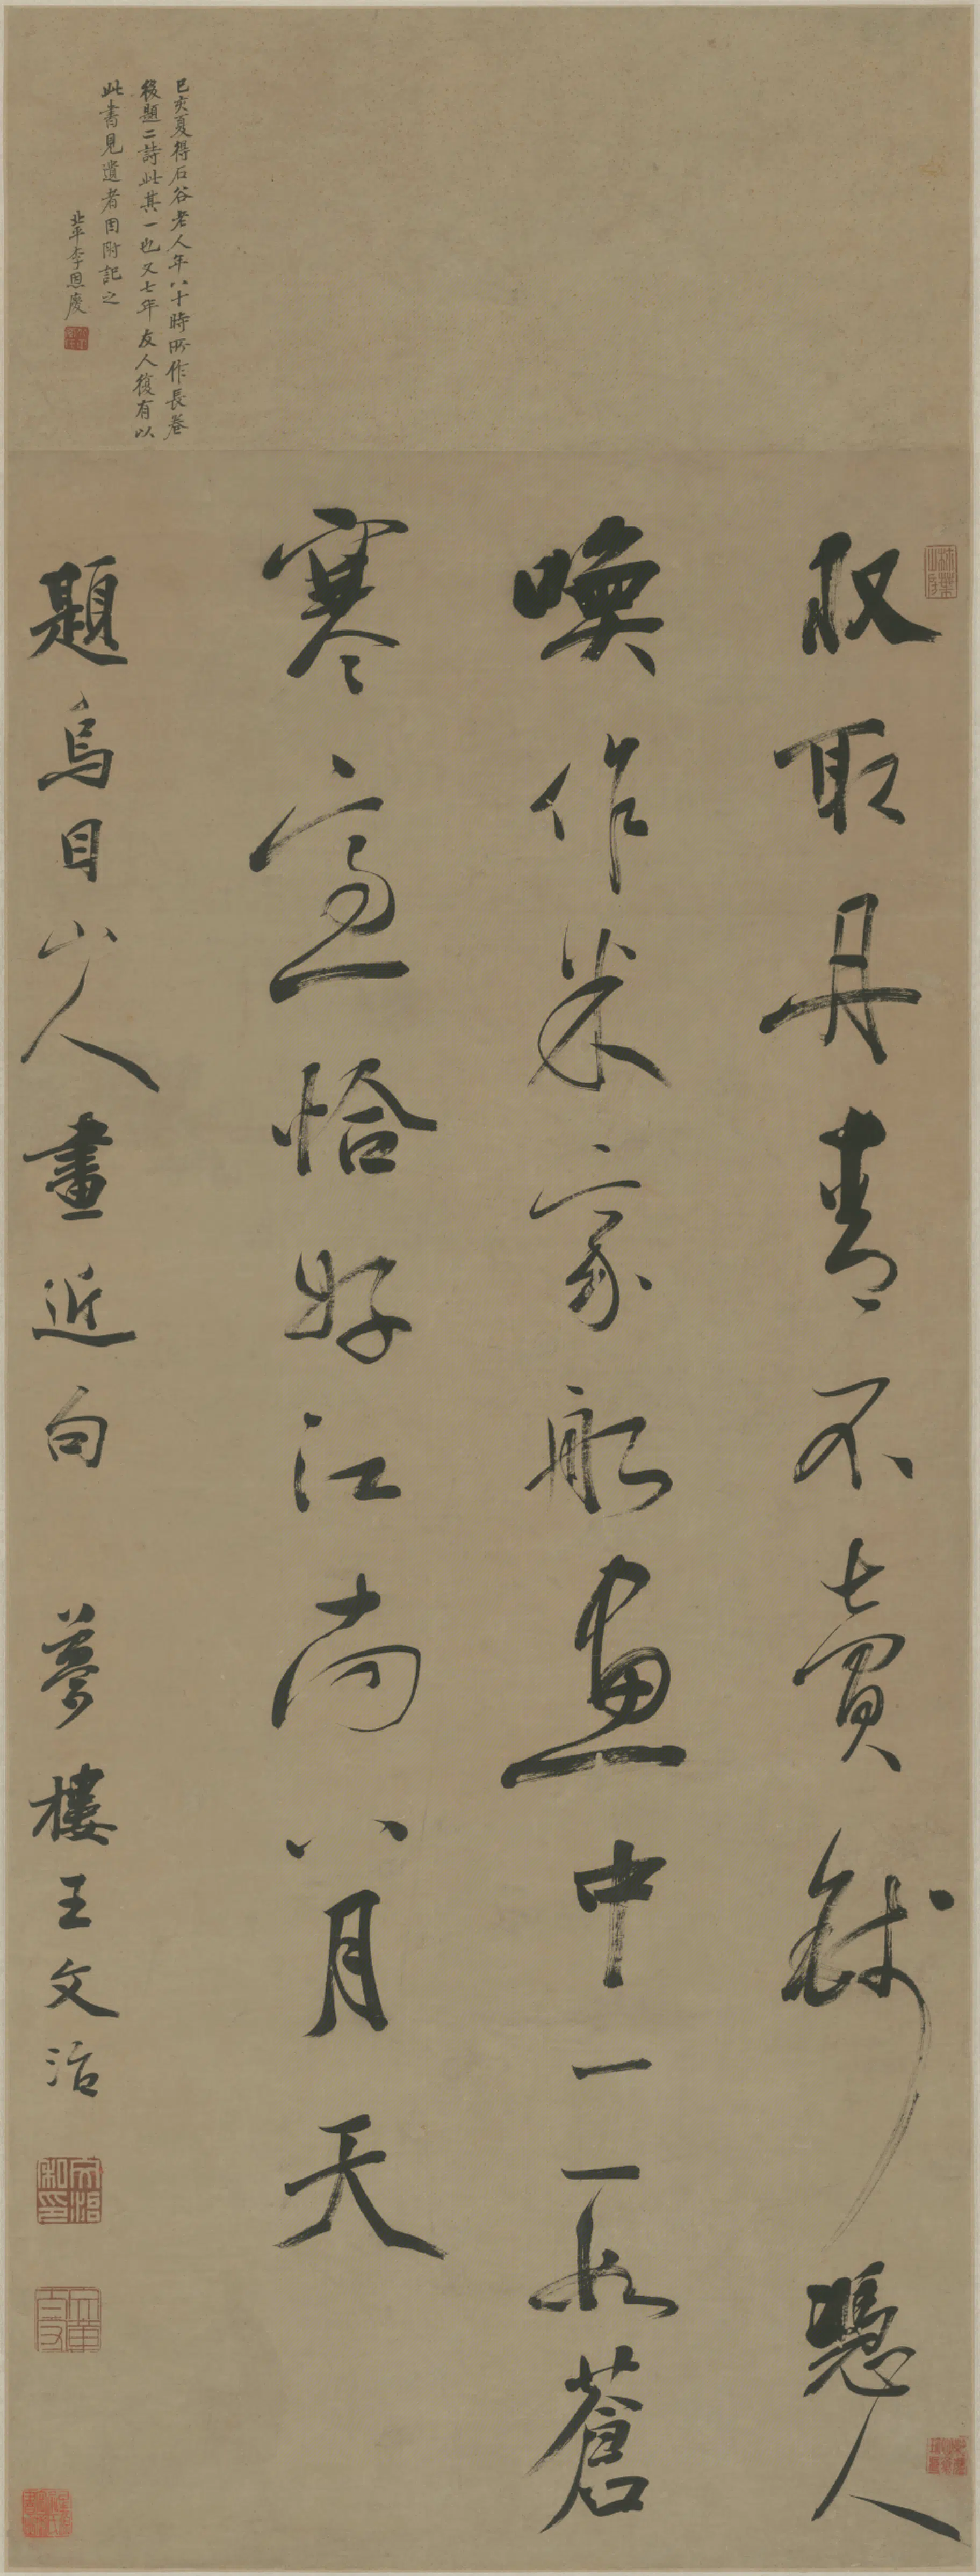 己亥夏得石谷老人年八十時所作長卷
後題二詩此其一也又七年友人復有以
此書見遺者因附記之
北平李恩慶
収取丹青不賣錢憑人
喚作米家船畫中一一水蒼
寒意恰好江南八月天
題烏目山人畫近句 夢樓王文治